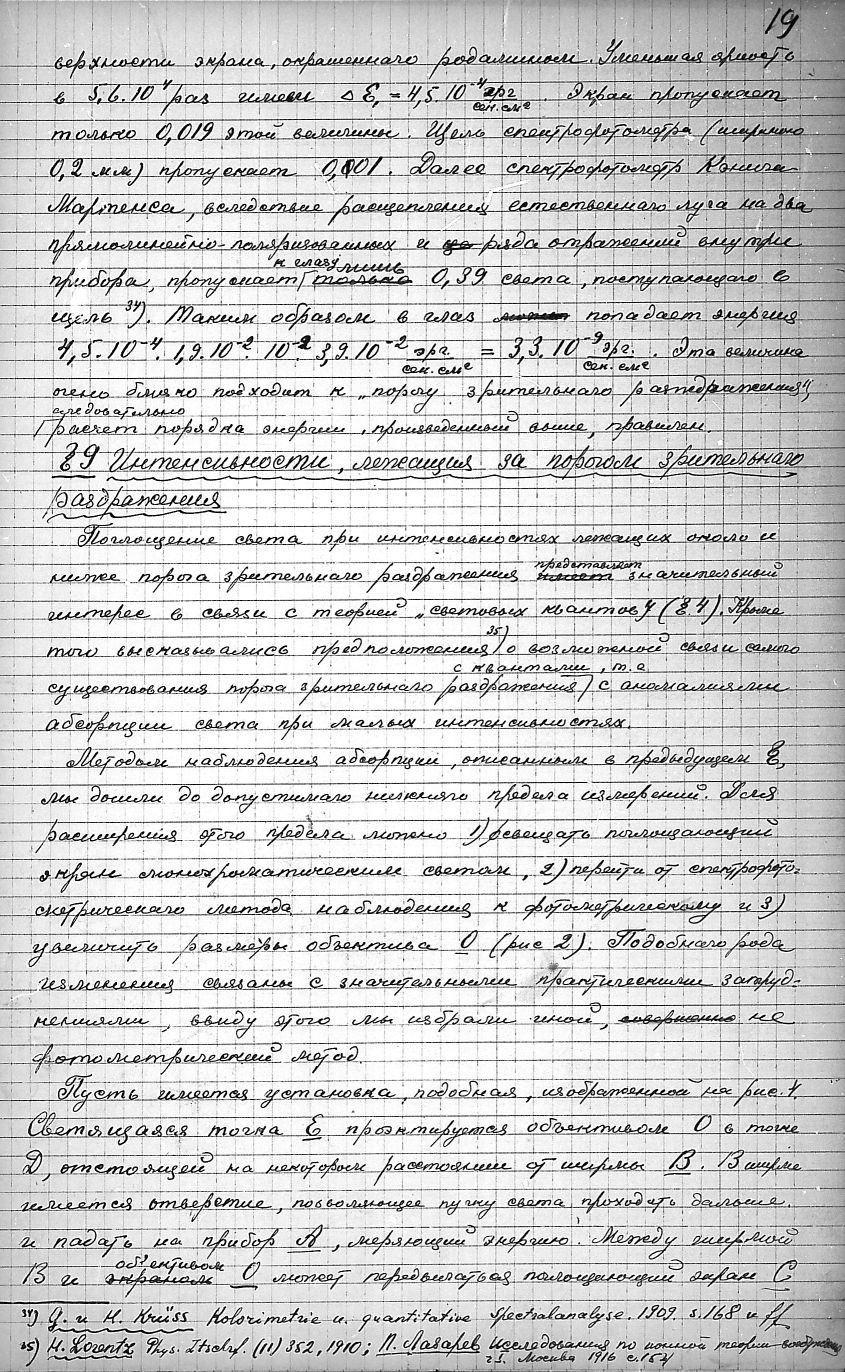 19
верхности экрана, окрашеннаго родамином. Уменьшая яркость
в 5,6.10⁴ раз имеем Δ E₁ = 4,5.10⁻⁴ эрг/сек.см² . Экран пропускает
только 0,019 этой величины. Щель спектрофотометра (шириною
0,2 мм) пропускает 0,01. Далее спектрофотометр Кэнига-
Мартенса, вследствие расщепления естественнаго луча на два
прямолинейно-поляризованных и ряда отражений внутри
прибора, пропускает к глазу лишь только 0,39 света, поступающаго в
щель ³⁴). Таким образом в глаз попадает энергия
4,5.10⁻⁴. 1,9.10⁻². 10⁻² 3,9.10⁻² эрг./сек.см² = 3,3.10⁻⁹ эрг./сек.см² . Эта величина
очень близко подходит к „порогу зрительнаго раздражения",
следовательно
расчет порядка энергии, произведенный выше, правилен.
§ 9 Интенсивности, лежащия за порогом зрительнаго
раздражения
Поглощение света при интенсивностях лежащих около и
ниже порога зрительнаго раздражения представляет имеет значительный
интерес в связи с теорией „световых квантов" (§ 4). Кроме
того высказывались предположения ³⁵) о возможной связи самого
с квантами, т.е
существования порога зрительнаго раздражения с аномалиями
абсорпции света при малых интенсивностях.
Методом наблюдения абсорпции, описанным в предыдущем §,
мы дошли до допустимаго нижняго предела измерений. Для
расширения этого предела можно 1) освещать поглощающий
экран монохроматическим светом, 2) перейти от спектрофото-
метрическаго метода наблюдения к фотометрическому и 3)
увеличить размеры объектива O (рис 2). Подобнаго рода
изменения связаны с значительными практическими затруд-
нениями, ввиду этого мы избрали иной, совершенно не
фотометрический метод.
Пусть имеется установка, подобная, изображенной на рис. 4.
Светящаяся точка E проэктируется объективом O в точке
D, отстоящей на некотором расстоянии от ширмы B. В ширме
имеется отверстие, позволяющее пучку света проходить дальше
и падать на прибор A, меряющий энергию. Между ширмой
B и объективом экраном O может передвигаться поглощающий экран C
³⁴) G. и H. Krüss Kolorimetrie u. quantitative Spectralanalyse. 1909. s. 168 и ff
³⁵) H. Lorentz Phys. Ztschrf. (11) 352, 1910; П. Лазарев Исследования по ионной теории возбуждения
ч I. Москва 1916 с. 154